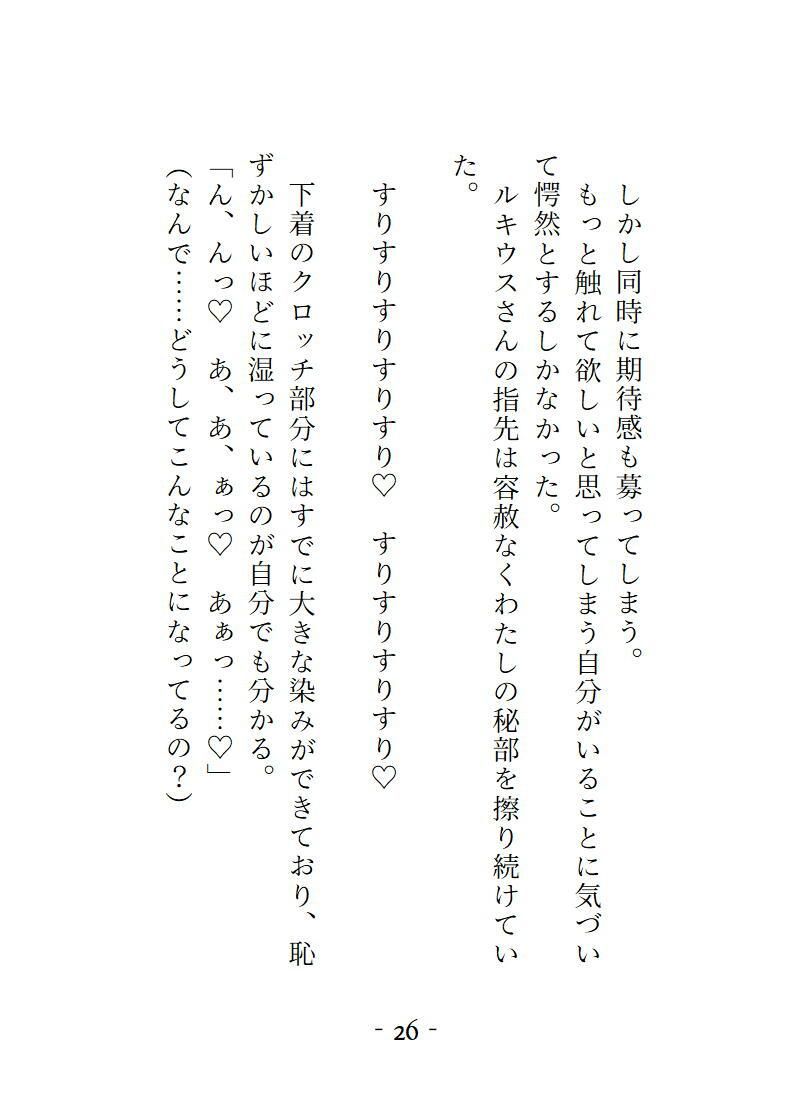 しかし同時に期待感も募ってしまう。
もっと触れて欲しいと思ってしまう自分がいることに気づい
て愕然とするしかなかった。
ルキウスさんの指先は容赦なくわたしの秘部を擦り続けてい
た。
すりすりすりすりすり♡　すりすりすりすり♡
下着のクロッチ部分にはすでに大きな染みができており、恥
ずかしいほどに湿っているのが自分でも分かる。
「ん、んっ♡　あ、あ、ぁっ♡　あぁっ……♡」
(なんで……どうしてこんなことになってるの？)
- 26 -